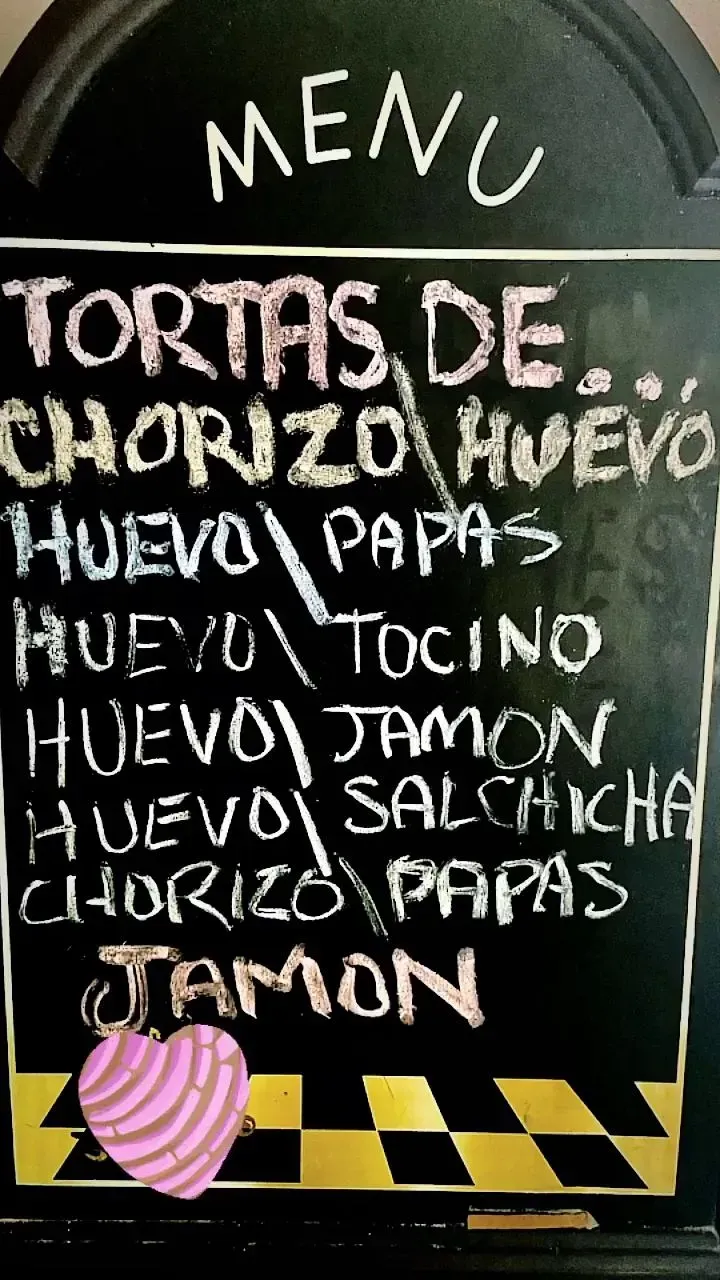 MENU
TORTAS DE...
CHORIZO\HUEVO
HUEVO\PAPAS
HUEVO\TOCINO
HUEVO\JAMON
HUEVO\SALCHICHA
CHORIZO\PAPAS
JAMON